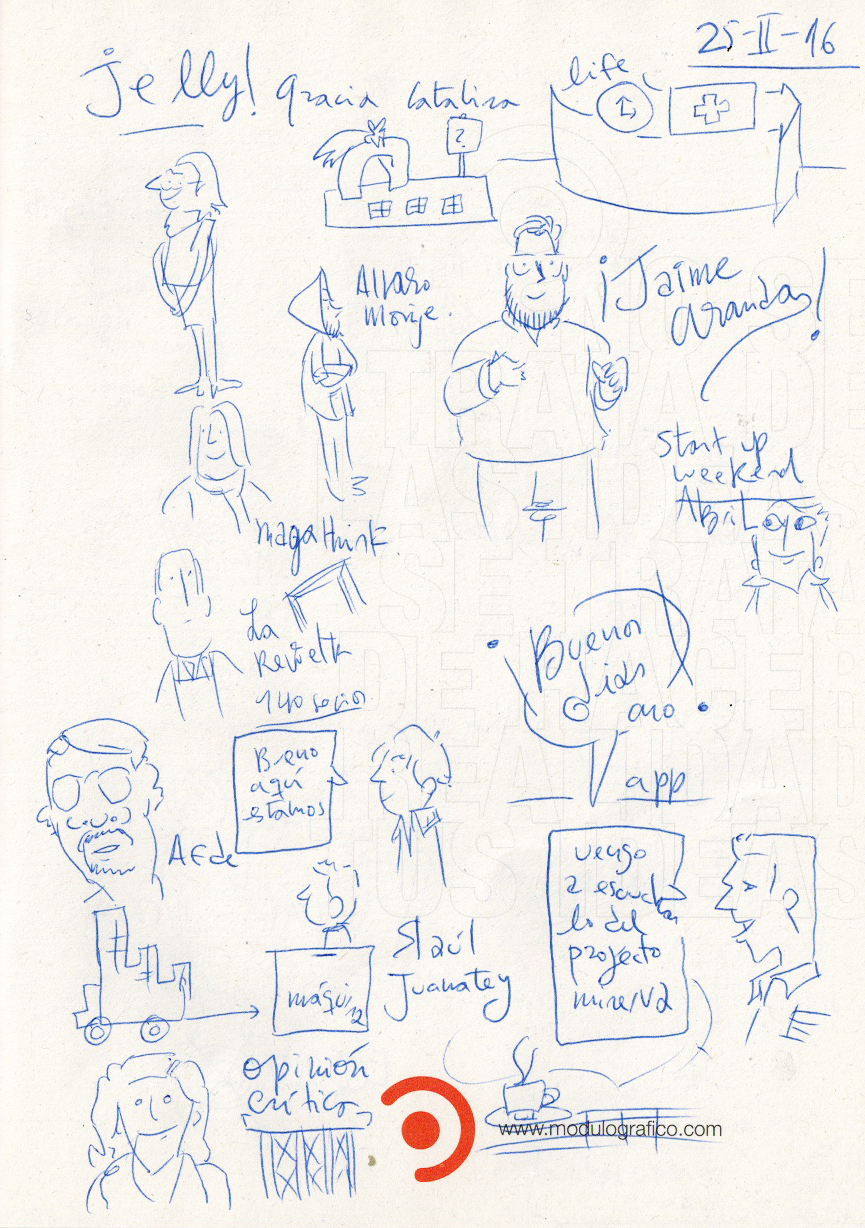 25-II-16
Jelly! Gracia Catalina
life
?
Alvaro
Monje.
¡Jaime
Aranda!
Start up
weekend
Abril
magathink
La
Revuelta
140 socios
¡Buenos
días
aro!
app
Bueno
aquí
estamos
Aede
vengo
a escuchar
lo del
proyecto
minerva
máquina
Slaúl
Juanatey
opinión
crítica
www.modulografico.com